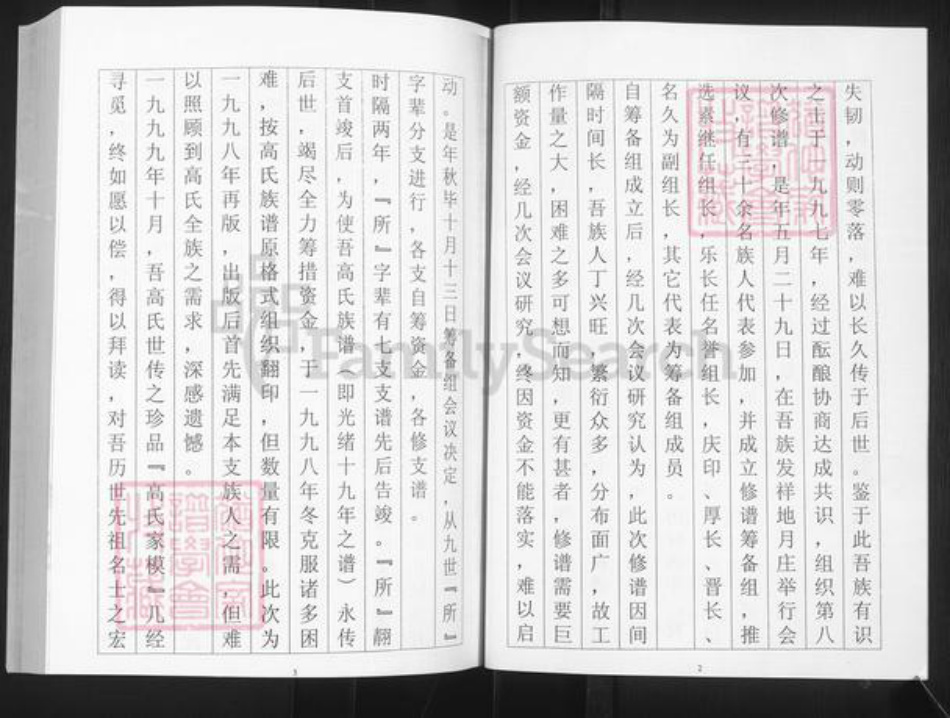 失韧，动则零落，难以长久传于后世。鉴于此吾族有识
之士于一九九七年，经过酝酿协商达成共识，组织第八
次修谱，是年五月二十九日，在吾族发祥地月庄举行会
议，有三十余名族人代表参加，并成立修谱筹备组，推
选素继任组长，乐长任名誉组长，庆印、厚长、晋长、
名久为副组长，其它代表为筹备组成员。
自筹备组成立后，经几次会议研究认为，此次修谱因间
隔时间长，吾族人丁兴旺，繁衍众多，分布面广，故工
作量之大，困难之多可想而知，更有甚者，修谱需要巨
额资金，经几次会议研究，终因资金不能落实，难以启
2
动。是年秋毕十月十三日筹备组会议决定，从九世『所』
字辈分支进行，各支自筹资金，各修支谱。
时隔两年，『所』字辈有七支支谱先后告竣。『所』翻
支首竣后，为使吾高氏族谱（即光绪十九年之谱）永传
后世，竭尽全力筹措资金，于一九九八年冬克服诸多困
难，按高氏族谱原格式组织翻印，但数量有限。此次为
一九九八年再版，出版后首先满足本支族人之需，但难
以照顾到高氏全族之需求，深感遗憾。
一九九九年十月，吾高氏世传之珍品『高氏家模』几经
寻觅，终如愿以偿，得以拜读，对吾历世先祖名士之宏
3
FamilySearch